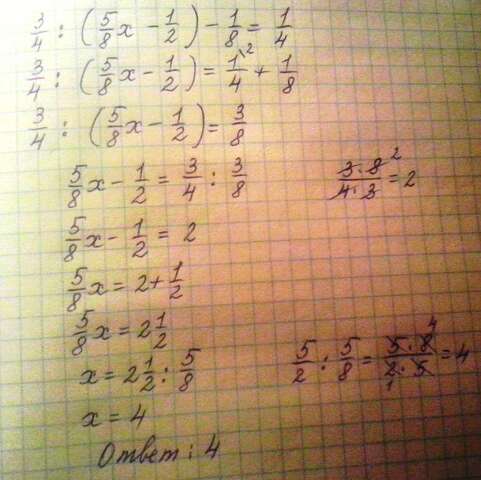 3/4 : (5/8 x - 1/2) - 1/8 = 1/4
3/4 : (5/8 x - 1/2) = 1/4 \2 + 1/8
3/4 : (5/8 x - 1/2) = 3/8
5/8 x - 1/2 = 3/4 : 3/8
3·8/4·3 2 = 2
5/8 x - 1/2 = 2
5/8 x = 2 + 1/2
5/8 x = 2 1/2
x = 2 1/2 : 5/8
5/2 : 5/8 = 5·8/2·5 4 1 = 4
x = 4
Ответ: 4